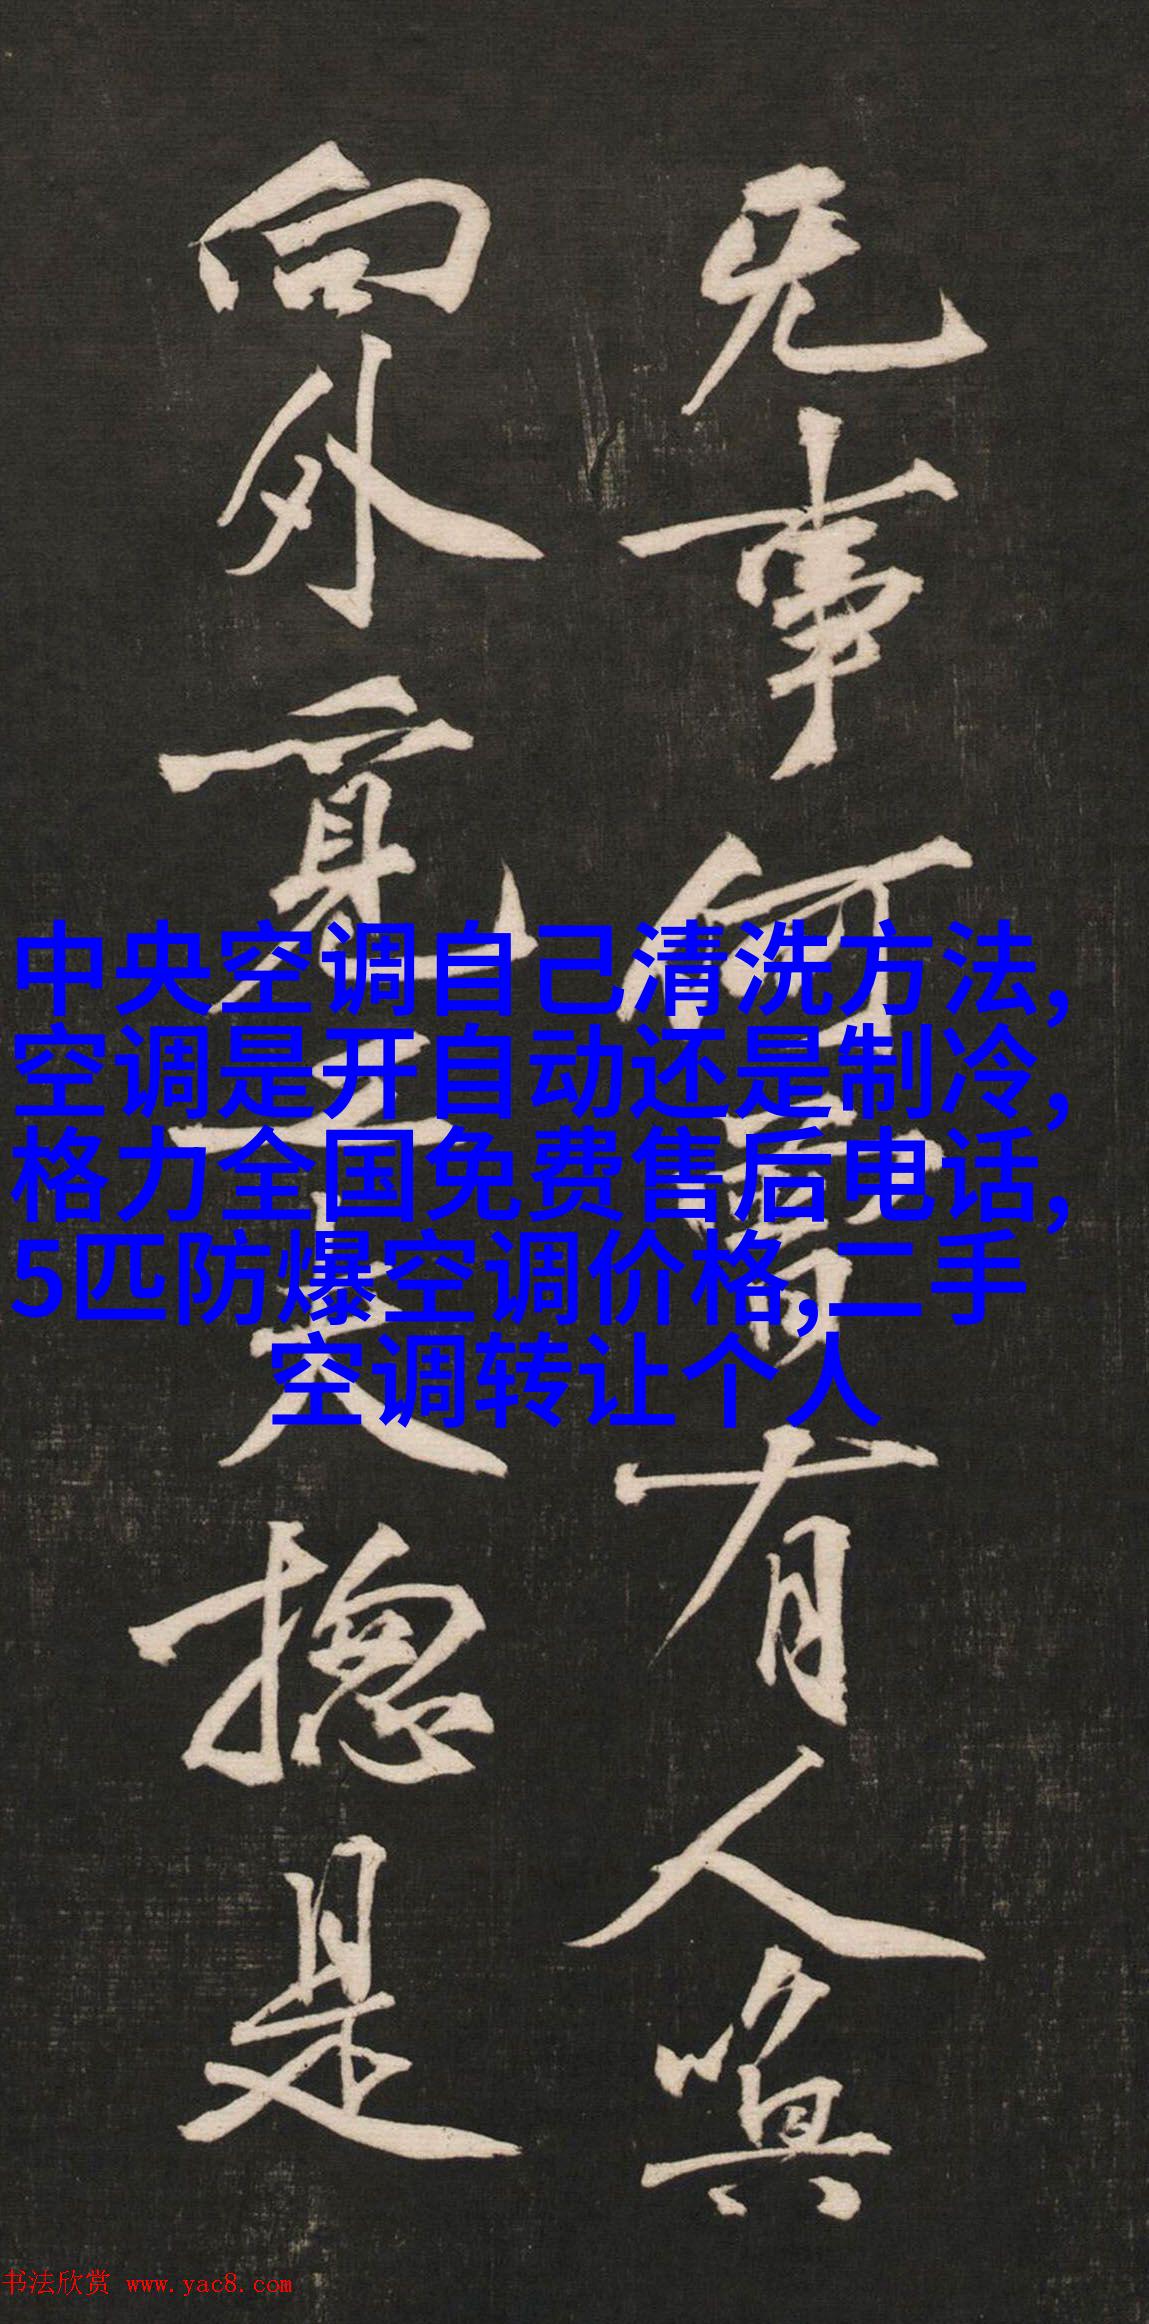 无事何曾有人喚
向外覓工夫摠是
中央空调自己清洗方法,
空调是开自动还是制冷,
格力全国免费售后电话,
5匹防爆空调价格,二手
空调转让个人
书法欣赏 www.yac8.com